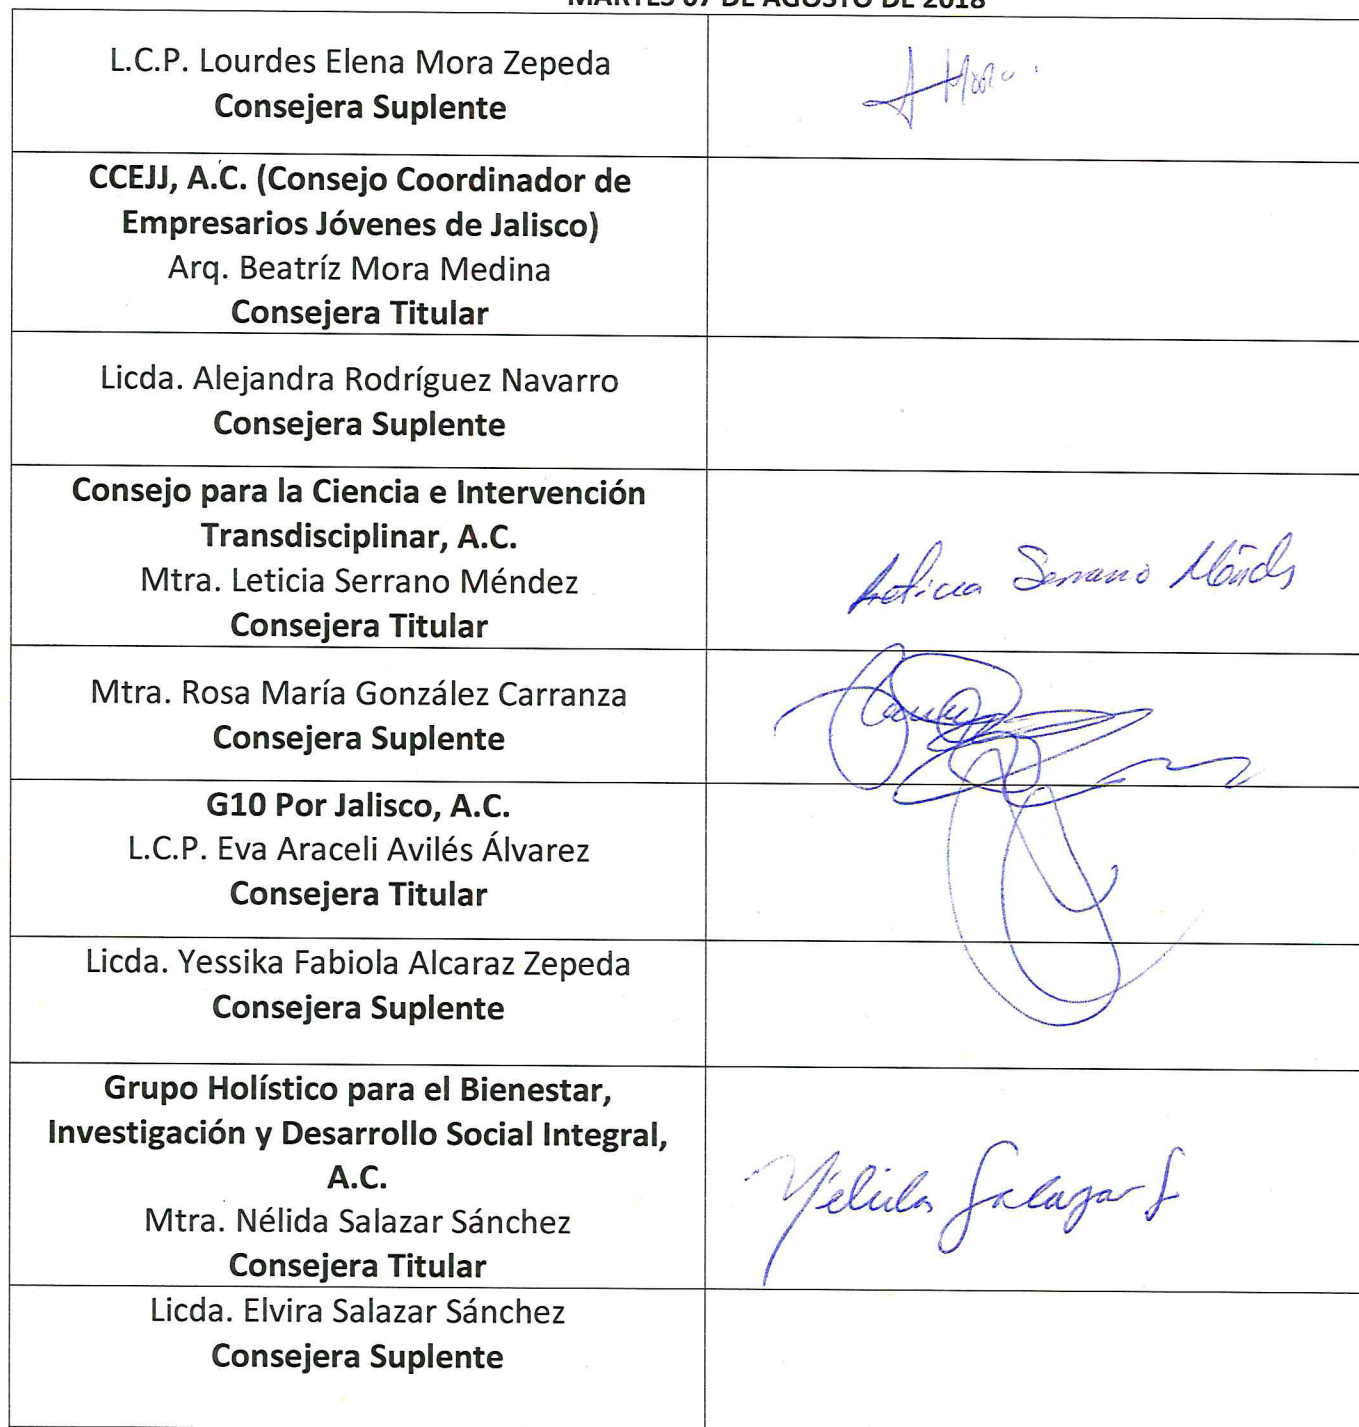 MARTES 07 DE AGOSTO DE 2018
L.C.P. Lourdes Elena Mora Zepeda
Consejera Suplente
CCEJJ, A.C. (Consejo Coordinador de
Empresarios Jóvenes de Jalisco)
Arq. Beatríz Mora Medina
Consejera Titular
Licda. Alejandra Rodríguez Navarro
Consejera Suplente
Consejo para la Ciencia e Intervención
Transdisciplinar, A.C.
Mtra. Leticia Serrano Méndez
Consejera Titular
Leticia Serrano Méndez
Mtra. Rosa María González Carranza
Consejera Suplente
G10 Por Jalisco, A.C.
L.C.P. Eva Araceli Avilés Álvarez
Consejera Titular
Licda. Yessika Fabiola Alcaraz Zepeda
Consejera Suplente
Grupo Holístico para el Bienestar,
Investigación y Desarrollo Social Integral,
A.C.
Mtra. Nélida Salazar Sánchez
Consejera Titular
Nélida Salazar S
Licda. Elvira Salazar Sánchez
Consejera Suplente